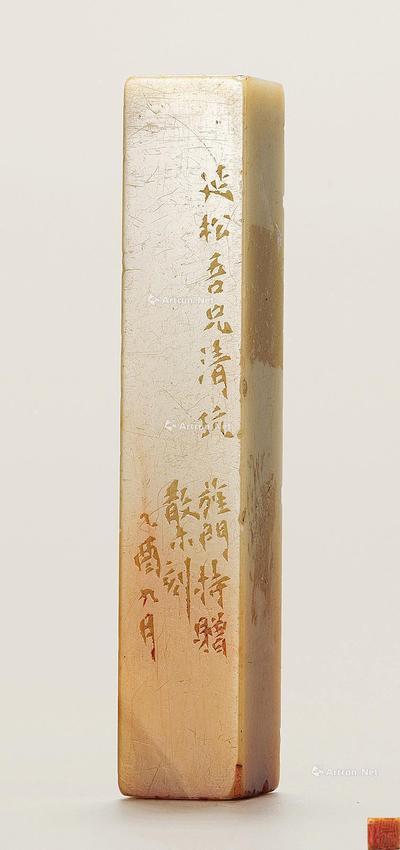 延松吾兄清玩
旌門持贈
散木刻
乙酉九月
Artron.Net
Artron.Net
Artron.Net